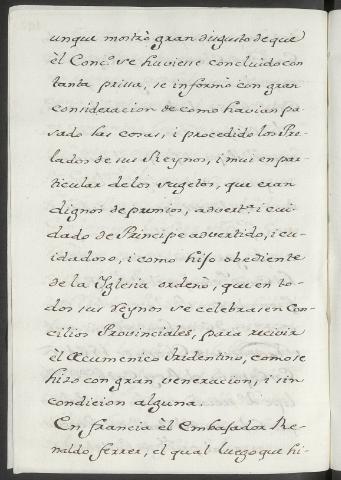 unque mostrò gran disgusto de que
èl Conc.º se huviesse concluido con
tanta prissa, se informò con gran
consideracion de como havian pa-
sado las cosas, i procedido los Pre-
lados de sus Reynos, i mui en par-
ticular de los sugetos, que eran
dignos de premios, advert.ª i cui-
dado de Principe advertido, i cu-
idadoso, i como hijo obediente
de la Iglesia ordenò, que en to-
dos sus reynos se celebrasen Con-
cilios Provinciales, para recivir
èl Œcumenico Tridentino, como se
hizo con gran veneracion, i sin
condicion alguna.
En francia èl Embajador Re-
naldo ferrer, el qual luego que hi-